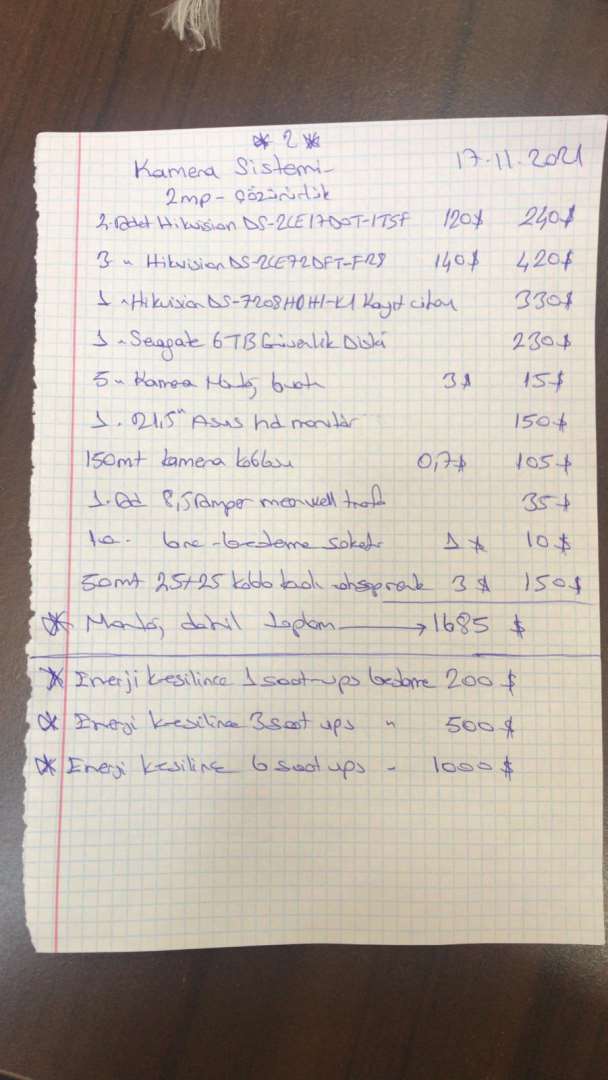 * 2 *
Kamera Sistemi 17.11.2021
2mp - çözünürlük
2. Adet Hikvision DS-2CE17D0T-IT5F 120$ 240$
3 " Hikvision DS-2CE72DFT-F28 140$ 420$
1 " Hikvision DS-7208HQHI-K1 Kayıt cihazı 330$
1 " Seagate 6TB Güvenlik Diski 230$
5 " Kamera Montaj 3$ 15$
1 . 21,5" Asus hd monitör 150$
150mt kamera kablosu 0,7$ 105$
1. Ad 8,5 Amper meanwell trafo 35$
10 . besleme soketi 1$ 10$
50mt 25+25 kablo 3$ 150$
* Montaj dahil toplam → 1685 $
* Enerji kesilince 1 saat ups besleme 200 $
* Enerji kesilince 3 saat ups " 500 $
* Enerji kesilince 6 saat ups " 1000 $